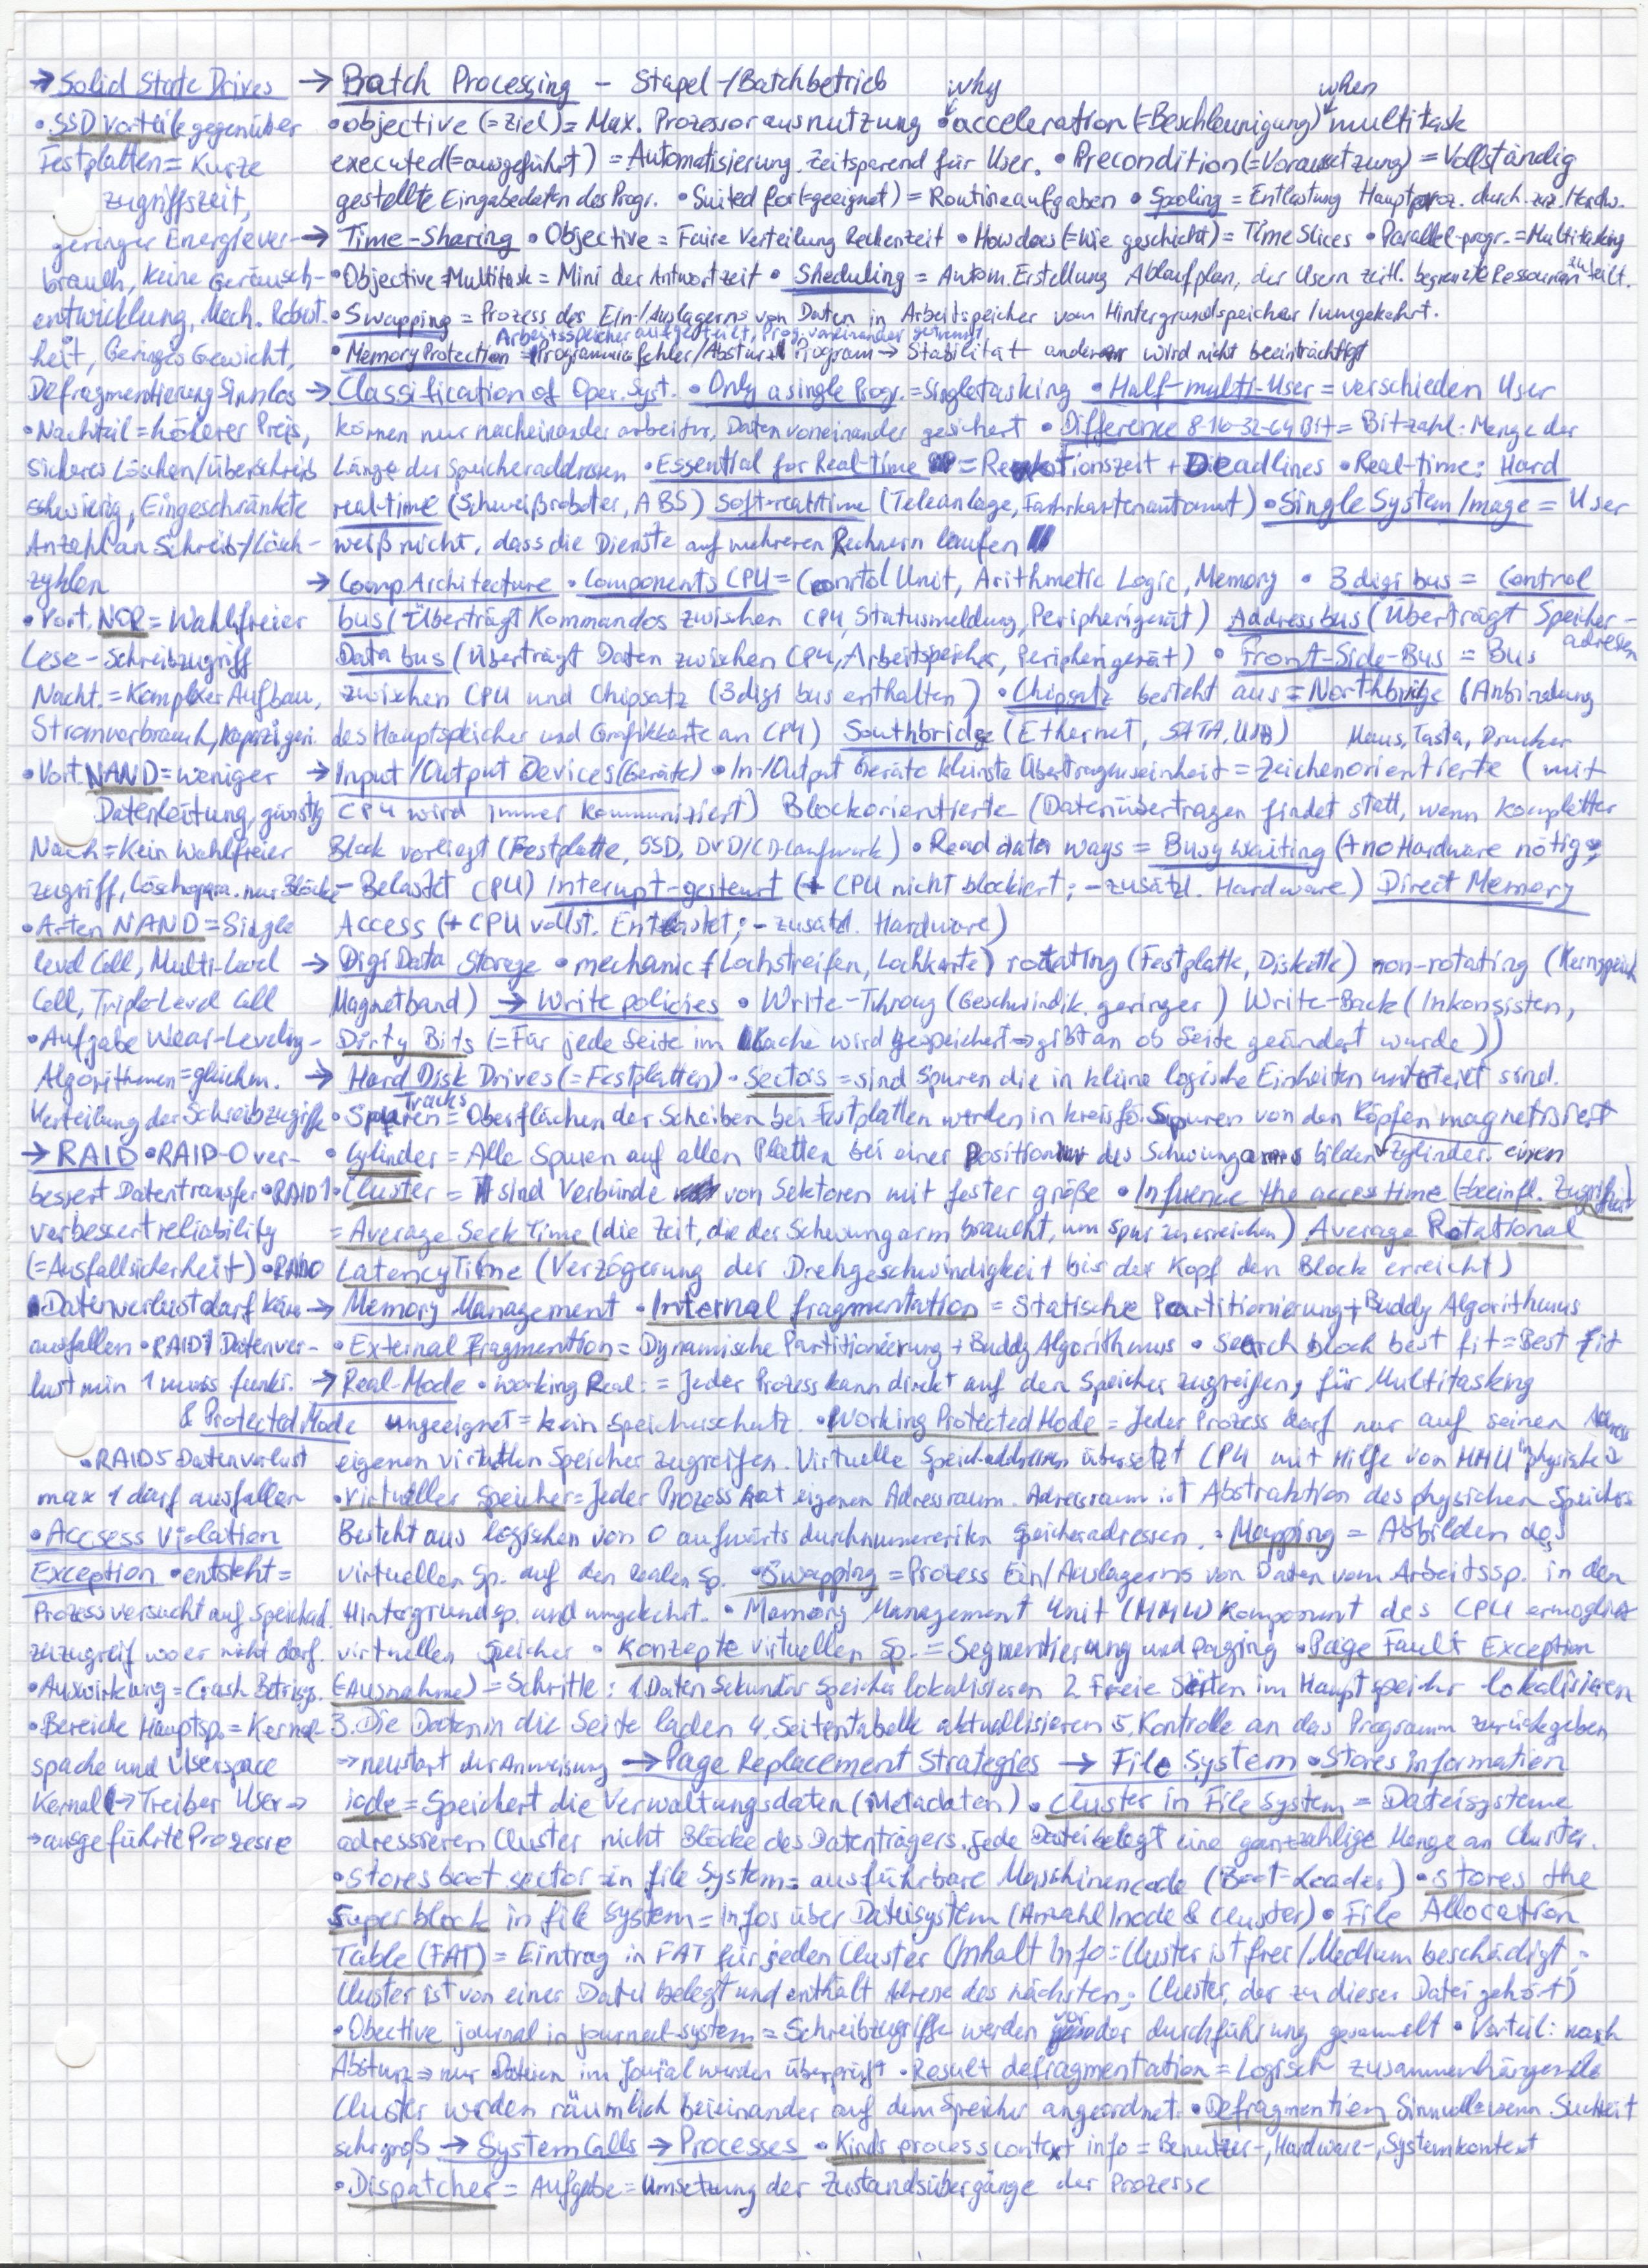 → Solid State Drives
• SSD Vorteile gegenüber
Festplatten = Kurze
zugriffszeit,
geringer Energiever-
brauch, keine Geräusch-
entwicklung, Mech. Robust-
heit, Geringes Gewicht,
Defragmentierung Sinnlos
• Nachteil = höherer Preis,
Sicheres Löschen/überschreib
schwierig, Eingeschränkte
Anzahl an Schreib-/Lösch-
zyklen
• Vort. NOR = Wahlfreier
Lese-Schreibzugriff
Nacht. = Komplexer Aufbau,
Stromverbrauch, Kapazi geri.
• Vort. NAND = weniger
Datenleitung, günstig
Nach = Kein Wahlfreier
zugriff, Löschopera. nur Blöcke
• Arten NAND = Single
level Cell, Multi-Level
Cell, Triple-Level Cell
• Aufgabe Wear-Leveling-
Algorithmen = gleichm.
Verteilung der Schreibzugriffe
→ RAID • RAID-0 ver-
bessert Datentransfer • RAID 1
verbessert reliability
(= Ausfallsicherheit) • RAID 0
Datenverlust darf kein
ausfallen • RAID 1 Datenver-
lust min 1 muss funkt.
• RAID5 Datenverlust
max 1 darf ausfallen
• Accsess Violation
Exception • entsteht =
Prozess versucht auf Speichad.
zuzugreif wo er nicht darf.
• Auswirkung = Crash Betrisys.
• Bereiche Hauptsp. = Kernel-
spache und Userspace
Kernel → Treiber User →
→ ausgeführte Prozesse
→ Batch Processing - Stapel-/Batchbetrieb why when
• objective (= Ziel) = Max. Prozessorausnutzung • acceleration (= Beschleunigung) multitask
executed (= ausgeführt) = Automatisierung. Zeitsparend für User. • Precondition (= Voraussetzung) = Vollständig
gestellte Eingabedaten des Progr. • Suited for (= geeignet) = Routineaufgaben • Spooling = Entlastung Hauptproz. durch zuz. Hardw.
→ Time-Sharing • Objective = Faire Verteilung Rechenzeit • How does (= wie geschieht) = Time Slices • Parallel-progr. = Multitasking
• Objective Multitask = Mini der Antwortzeit • Sheduling = Autom. Erstellung Ablaufplan, der Usern zeitl. begrenzte Ressourcen zuteilt.
• Swapping = Prozess des Ein-/Auslagerns von Daten in Arbeitspeicher vom Hintergrundspeicher / umgekehrt.
Arbeitsspeicher aufgeteilt, Prog. voneinander getrennt
• Memory Protection = Programmfehler/Absturz Program → Stabilität anderer wird nicht beeinträchtigt
→ Classification of Oper. Syst. • Only a single Progr. = Singletasking • Half-multi-User = verschieden User
können nur nacheinander arbeiten, Daten voneinander gesichert • Difference 8-16-32-64 Bit = Bitzahl: Menge der
Länge der Speicheraddressen • Essential for Real-time = Reaktionszeit + Deadlines • Real-time: Hard
real-time (Schweißroboter, ABS) Soft-realtime (Teleanlage, Fahrkartenautomat) • Single System Image = User
weiß nicht, dass die Dienste auf mehreren Rechnern laufen
→ Comp Architecture • Components CPU = Control Unit, Arithmetic Logic, Memory • 3 digi bus = Control
bus (Überträgt Kommandos zwischen CPU, Statusmeldung, Peripherigerät) Address bus (Überträgt Speicher-
adressen
Data bus (Überträgt Daten zwischen CPU, Arbeitspeicher, Peripherigerät) • Front-Side-Bus = Bus
zwischen CPU und Chipsatz (3 digi bus enthalten) • Chipsatz besteht aus = Northbridge (Anbindung
des Hauptspeicher und Grafikkarte an CPU) Southbridge (Ethernet, SATA, USB) Maus, Tasta, Drucker
→ Input/Output Devices (Geräte) • In-/Output Geräte kleinste Übertragungseinheit = Zeichenorientierte (mit
CPU wird immer kommuniziert) Blockorientierte (Datenübertragen findet statt, wenn kompletter
Block vorliegt (Festplatte, SSD, DVD/CD-Laufwerk) • Read data ways = Busy waiting (+ no Hardware nötig;
- Belastet CPU) Interupt-gesteurt (+ CPU nicht blockiert; - zusätzl. Hardware) Direct Memory
Access (+ CPU vollst. Entlastet; - zusätzl. Hardware)
→ Digi Data Storage • mechanic (Lochstreifen, Lochkarte) rotating (Festplatte, Diskette) non-rotating (Kernspeich
Magnetband) → Write policies • Write-Throug (Geschwindik. geringer) Write-Back (Inkonsisten,
Dirty Bits (= Für jede Seite im Cache wird gespeichert → gibt an ob Seite geändert wurde))
→ Hard Disk Drives (= Festplatten) • Sectois = sind Spuren die in kleine logische Einheiten unterteilt sind.
Tracks
• Spuren = Oberflächen der Scheiben bei Festplatten werden in kreisfö. Spuren von den Köpfen magnetisiert
• Cylinder = Alle Spuren auf allen Platten bei einer Position des Schwungarms bilden einen Zylinder.
• Cluster = sind Verbünde von Sektoren mit fester größe • Influence the access time (= beeinfl. Zugriffszeit)
= Average Seek Time (die Zeit, die der Schwungarm braucht, um Spur zu erreichen) Average Rotational
Latency Time (Verzögerung der Drehgeschwindigkeit bis der Kopf den Block erreicht)
→ Memory Management • Internal fragmentation = Statische Partitionierung + Buddy Algorithmus
• External Fragmention = Dynamische Partitionierung + Buddy Algorithmus • Search block best fit = Best fit
→ Real-Mode • working Real: = Jeder Prozess kann direkt auf den Speicher zugreifen, für Multitasking
& Protected Mode ungeeignet = kein Speicherschutz. • Working Protected Mode = Jeder Prozess darf nur auf seinen
eigenen virtuellen Speicher zugreifen. Virtuelle Speicheraddressen übersetzt CPU mit Hilfe von MMU in physische
• virtueller Speicher = Jeder Prozess hat eigenen Adressraum. Adressraum ist Abstraktion des physichen Speichers
Besteht aus logischen von 0 aufwärts durchnummerierten Speicheradressen. • Mapping = Abbilden des
virtuellen Sp. auf den realen Sp. • Swapping = Prozess Ein/Auslagerns von Daten vom Arbeitssp. in den
Hintergrundsp. und umgekehrt. • Memory Management Unit (MMU) Komponent des CPU ermöglicht
virtuellen Speicher • Konzepte virtuellen Sp. = Segmentierung und Paging • Page Fault Exception
(Ausnahme) = Schritte: 1. Daten Sekundär Speicher lokalisieren 2. Freie Seiten im Hauptspeicher lokalisieren
3. Die Daten in die Seite laden 4. Seitentabelle aktuallisieren 5. Kontrolle an das Programm zurückgeben
→ neustart der Anweisung → Page Replacement Strategies → File System • Stores information
inode = Speichert die Verwaltungsdaten (Metadaten) • Cluster in File system = Dateisysteme
adresssieren Cluster nicht Blöcke des Datenträgers. Jede Datei belegt eine ganzzahlige Menge an Cluster.
• Stores boot sector in file System = ausführbare Maschinencode (Boot-Loader) • stores the
Super block in file System = Infos über Dateisystem (Anzahl Inode & Cluster) • File Allocation
Table (FAT) = Eintrag in FAT für jeden Cluster (Inhalt Info: Cluster ist frei / Medium beschädigt;
Cluster ist von einer Datei belegt und enthält Adresse des nächsten; Cluster, der zu dieser Datei gehört)
• Obective journal in journal-system = Schreibzugriffe werden vor der durchführung gesammelt • Vorteil: nach
Absturz → nur Dateien im Jounal werden überprüft • Result defragmentation = Logisch zusammenhängende
Cluster werden räumlich beieinander auf dem Speicher angeordnet. • Defragmentien Sinnvoll wenn Suchzeit
sehr groß → System Calls → Processes • Kinds process context info = Benutzer-, Hardware-, Systemkontext
• Dispatcher = Aufgabe = Umsetzung der Zustandsübergänge der Prozesse